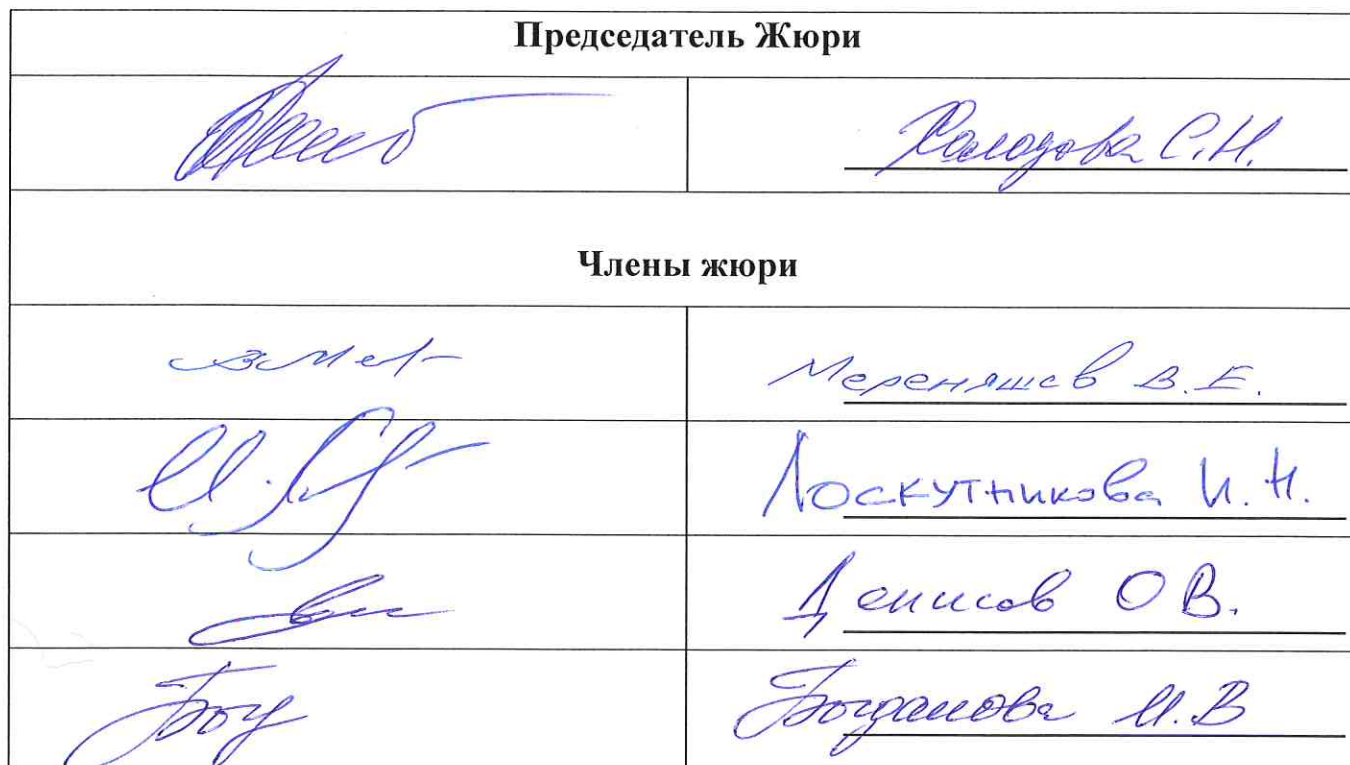 Председатель Жюри
Холодова С.Н.
Члены жюри
Мереняшев В.Е.
Лоскутникова И.Н.
Денисов О В.
Богданова И.В